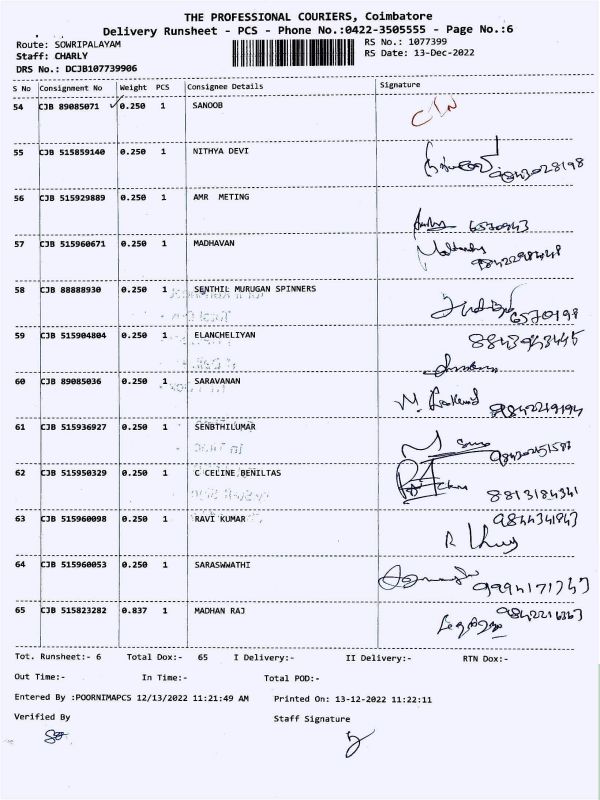 THE PROFESSIONAL COURIERS, Coimbatore
Delivery Runsheet - PCS - Phone No.:0422-3505555 - Page No.:6
Route: SOWRIPALAYAM
RS No.: 1077399
Staff: CHARLY
RS Date: 13-Dec-2022
DRS No.: DCJB107739906
S No Consignment No Weight PCS Consignee Details Signature
54 CJB 89085071 0.250 1 SANOOB
55 CJB 515859140 0.250 1 NITHYA DEVI
9843028198
56 CJB 515929889 0.250 1 AMR METING
6570943
57 CJB 515960671 0.250 1 MADHAVAN
58 CJB 88888930 0.250 1 SENTHIL MURUGAN SPINNERS
6570198
59 CJB 515904804 0.250 1 ELANCHELIYAN
8843943445
60 CJB 89085036 0.250 1 SARAVANAN
9842219194
61 CJB 515936927 0.250 1 SENBTHILUMAR
62 CJB 515950329 0.250 1 C CELINE BENILTAS
8813184341
63 CJB 515960098 0.250 1 RAVI KUMAR
9844341843
64 CJB 515960053 0.250 1 SARASWWATHI
9994171747
65 CJB 515823282 0.837 1 MADHAN RAJ
9842216363
Tot. Runsheet:- 6 Total Dox:- 65 I Delivery:- II Delivery:- RTN Dox:-
Out Time:- In Time:- Total POD:-
Entered By :POORNIMAPCS 12/13/2022 11:21:49 AM Printed On: 13-12-2022 11:22:11
Verified By Staff Signature